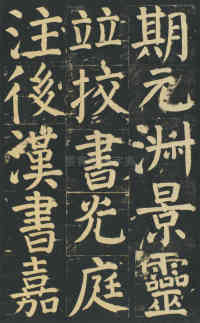 期元洲景靈
竝挍書光庭
注後漢書嘉